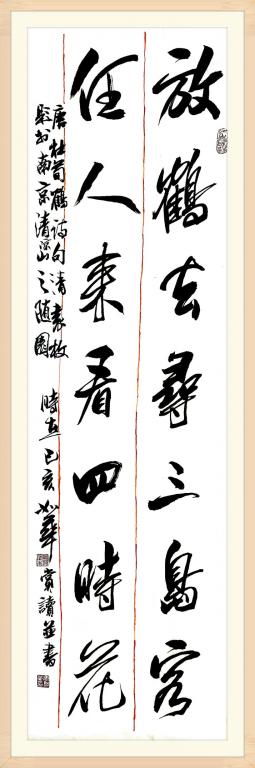 放鶴去尋三島客
任人來看四時花
唐杜荀鶴詩句清袁枚
題於南京清凉山之随園
時在己亥如華賞讀並書